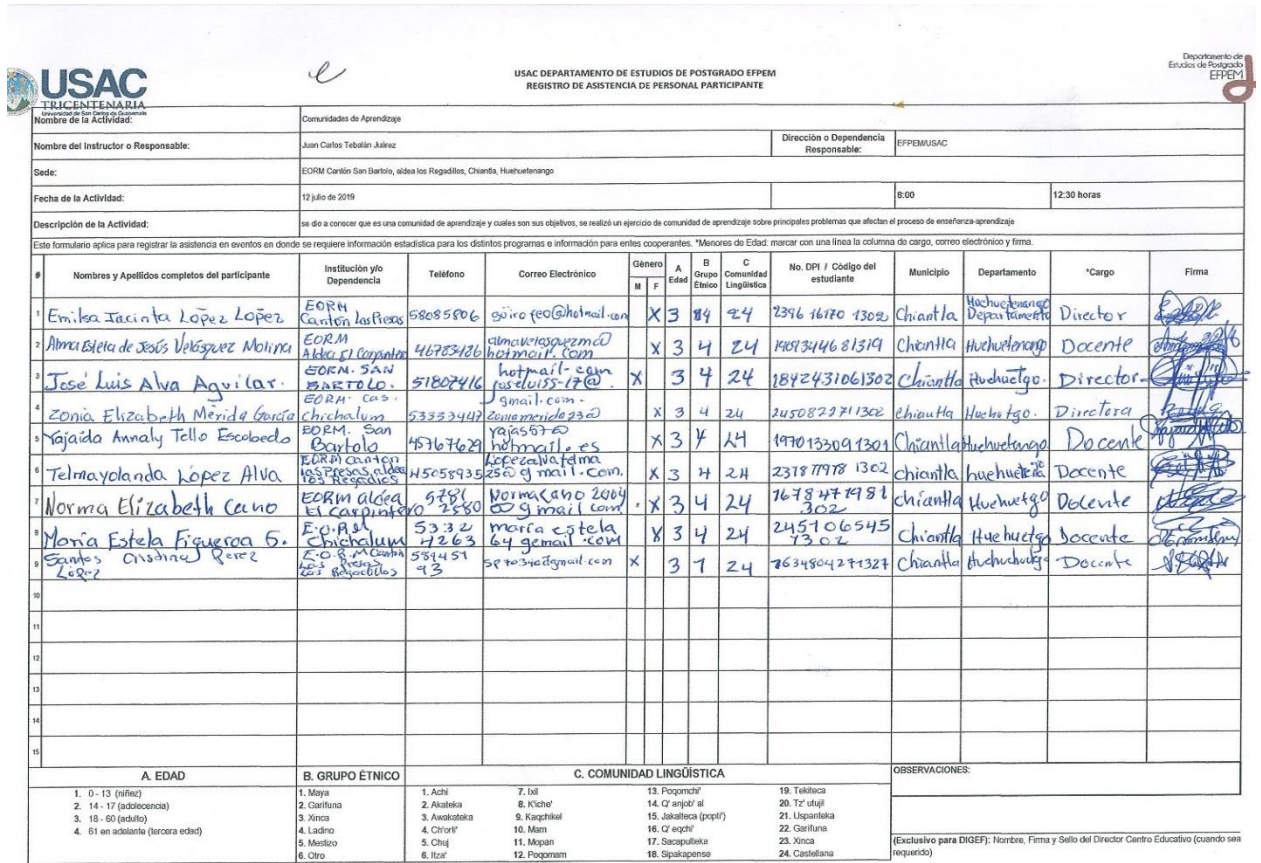 USAC
TRICENTENARIA
Universidad de San Carlos de Guatemala
USAC DEPARTAMENTO DE ESTUDIOS DE POSTGRADO EFPEM
REGISTRO DE ASISTENCIA DE PERSONAL PARTICIPANTE
Departamento de
Estudios de Postgrado
EFPEM
Nombre de la Actividad: Comunidades de Aprendizaje
Nombre del Instructor o Responsable: Juan Carlos Tebalán Juárez Dirección o Dependencia Responsable: EFPEM/USAC
Sede: EORM Cantón San Bartolo, aldea los Regadillos, Chiantla, Huehuetenango
Fecha de la Actividad: 12 julio de 2019 8:00 12:30 horas
Descripción de la Actividad: se dio a conocer que es una comunidad de aprendizaje y cuales son sus objetivos, se realizó un ejercicio de comunidad de aprendizaje sobre principales problemas que afectan el proceso de enseñanza-aprendizaje
Este formulario aplica para registrar la asistencia en eventos en donde se requiere información estadística para los distintos programas e información para entes cooperantes. *Menores de Edad: marcar con una línea la columna de cargo, correo electrónico y firma.
# Nombres y Apellidos completos del participante Institución y/o Dependencia Teléfono Correo Electrónico Género M F A Edad B Grupo Étnico C Comunidad Lingüistica No. DPI / Código del estudiante Municipio Departamento *Cargo Firma
1 Emilsa Jacinta López López EORM Cantón Las Presas 58085806 güirofeo@hotmail.com X 3 4 24 2396 16170 1302 Chiantla Huehuetenango Departamento Director
2 Alma Estela de Jesús Velásquez Molina EORM Aldea El Carpintero 46783486 almavelasquezm@hotmail.com X 3 4 24 1909344681319 Chiantla Huehuetenango Docente
3 José Luis Alva Aguilar. EORM. SAN BARTOLO. 51807416 hotmail.com joseluiss-17@. X 3 4 24 1842431061302 Chiantla Huehuetgo. Director
4 Zonia Elizabeth Mérida García EORM. Cas. Chichalum 53333447 gmail.com. zoniamerida23@ X 3 4 24 2450822711302 Chiantla Huehutgo. Directora
5 Yajaida Annaly Tello Escobedo EORM. San Bartolo 45767629 yajas57@hotmail.es X 3 4 24 1970133091301 Chiantla Huehuetengo Docente
6 Telmayolanda López Alva EORM Canton las Presas, aldea los Regadios 45058935 Lopezalvatelma25@gmail.com. X 3 4 24 237877978 1302 chiantla Docente
7 Norma Elizabeth Cano EORM aldea El Carpintero 5781 2580 Normacano2004@gmail.com X 3 4 24 1678471981302 chiantla Huehuetgo Docente
8 María Estela Figueroa G. E.O.R.M Chichalum 5332 4263 maría estela 64 gemail.com X 3 4 24 245106545 1302 Chiantla Huehuetgo Docente
9 Santos Cristina Perez López E.O.R.M Canton Las Presas Los Regadillos 589451 93 X 3 1 24 1634804271327 Chiantla Docente
10
11
12
13
14
15
A. EDAD
1. 0 - 13 (niñez)
2. 14 - 17 (adolecencia)
3. 18 - 60 (adulto)
4. 61 en adelante (tercera edad)
B. GRUPO ÉTNICO
1. Maya
2. Garifuna
3. Xinca
4. Ladino
5. Mestizo
6. Otro
C. COMUNIDAD LINGÜÍSTICA
1. Achi
2. Akateka
3. Awakateka
4. Ch'orti'
5. Chuj
6. Itza'
7. Ixil
8. K'iche'
9. Kaqchikel
10. Mam
11. Mopan
12. Poqomam
13. Poqomchi'
14. Q' anjob' al
15. Jakalteca (popti')
16. Q' eqchi'
17. Sacapulteka
18. Sipakapense
19. Tekiteca
20. Tz' utujil
21. Uspanteka
22. Garifuna
23. Xinca
24. Castellana
OBSERVACIONES:
(Exclusivo para DIGEF): Nombre, Firma y Sello del Director Centro Educativo (cuando sea requerido)